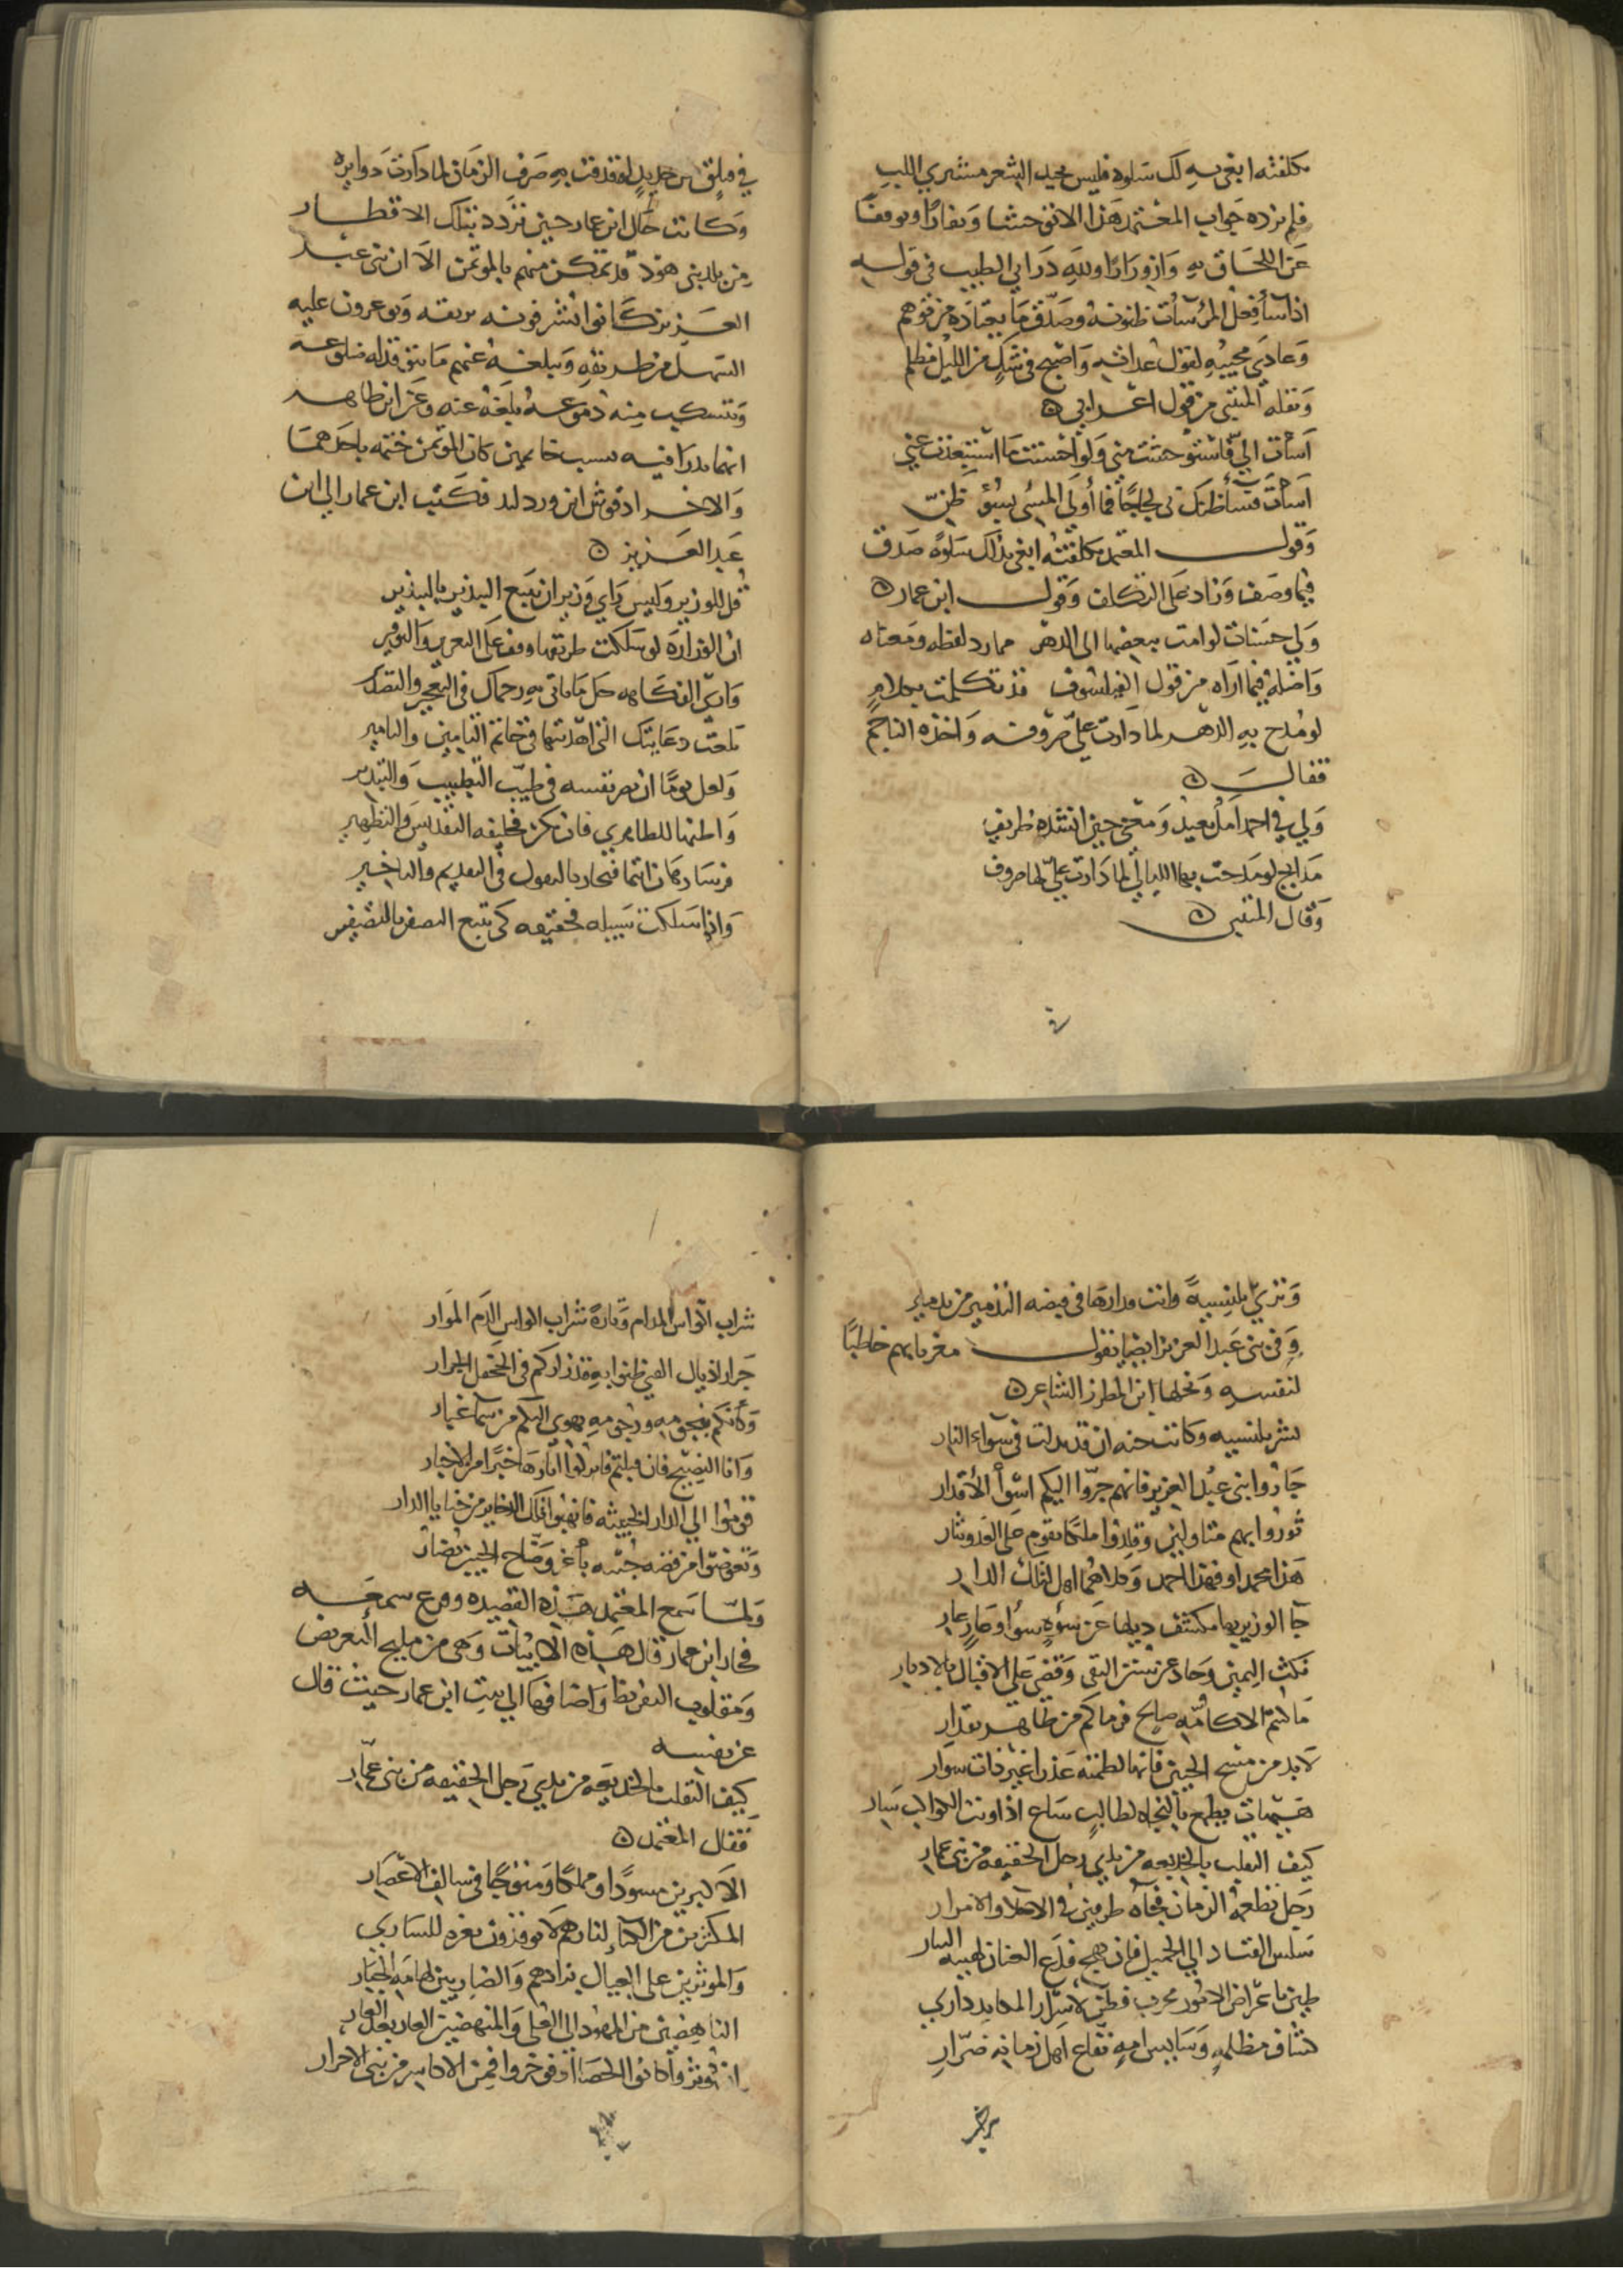 تكلفته ابغي به لك سلوة فليس يجيد الشعر مشتري اللب
فلم يزده جواب المعتمد هذا الا توحشا ونفارا وتوقفا
عن اللحاق به وازورارا ولله در ابي الطيب في قوله
اذا ساء فعل المرء ساءت ظنونه وصدق ما يعتاده من توهم
وعادي محبيه لقول عداته واصبح في شك من الليل مظلم
ونقله المتنبي من قول اعرابي
اسات الي فاستوحشت مني ولو احسنت ما استبعدت عني
اسات فساء ظنك بي لجاجا فما اولي المسئ بسوء ظن
وقول المعتمد تكلفته ابغي بذاك سلوة صدق
فيما وصف وزاد علي التكلف وقول ابن عمار
ولي حسنات لو امت ببعضها الي الدهر مما رد لفظه ومعناه
واصله فيما اراه من قول الفيلسوف قد تكلمت بكلام
لو مدح به الدهر لما دارت علي صروفه واخذه الناجم
فقال
ولي في احمد امل بعيد ومدح حين انشده طريف
مدايح لو مدحت بها الليالي لما دارت علي لها صروف
وقال المتنبي
في فيلق من حديد لو قذفت به صرف الزمان لما دارت دوايره
وكانت حال ابن عمار حين تردد بتلك الاقطار
من بلد بني هود قد تمكن منهم بالموتمن الا ان بني عبد
العزيز كانوا يشرقونه بريقه ويوعرون عليه
السهل من طريقه ويبلغه عنهم ما تتوقد له ضلوعه
وتنسكب منه دموعه بلغه عنه وعن ابن طاهر
انهما بدرا فيه بسبب خاتمين كان الموتمن ختمه باحدهما
والاخر ادفونش ابن وردلند فكتب ابن عمار الي ابن
عبد العزيز
قل للوزير وليس راي وزير ان يتبع التبذير بالتبذير
ان الوزارة لو سلكت طريقها وقف علي التعزير والتوقير
واري الفكاهه جل ما تاتي به رحماك في التعجيز والتصدير
بلغت دعابتك التي اهديتها في خاتم التامين والتامير
ولعل يوما ان يصير نفسه في طيب التطييب والتبدير
واظنها للطاهري فان تكن فخليفه التقديس والتطهير
فرسا رهان انتما فتجاريا بالقول في التقديم والتاخير
واذا سلكت سبيله فحقيقه كي تتبع التصفير بالتصفير
وتري بلنسية وانت مدارها في قبضه التدمير من تدمير
وفي بني عبد العزيز ايضا يقول مغريا بهم خاطبا
لنفسه ونحلها ابن المطرز الشاعر
بشر بلنسيه وكانت جنه ان قد تدلت في سواء النار
جاروا بني عبد العزيز فانهم جروا اليكم اسوأ الاقدار
ثوروا بهم متاولين وقلدوا ملكا يقوم علي العدو بثار
هذا محمد او فهذا احمد وكلاهما اهل لتلك الدار
جا الوزير بها يكشف ذيلها عن سوءة سوا وعار عار
نكث اليمين وحاد عن سنن التقي وقضي علي الاقبال بالادبار
ما كنتم الا كامة صالح فرماكم من طاهر بقدار
لا بد من مسح الجبين فانما لطمته عذرا غير ذات سوار
هيهات يطمع بالنجاة لطالب ساع اذا ونت الكواكب سار
كيف التفلت بالخديعه من يدي رجل الحقيقه من بني عمار
رجل تطعمه الزمان فجاه طرفين في الاحلا والامرار
سلس القياد الي الجميل فان يهج فدع العنان لهبة التيار
طبن باغراض الامور مجرب فطن لاسرار المكايد داري
كشاف مظلمة وسايس امة نفاع اهل زمانه ضرار
شراب اكواس المدام وتارة شراب اكواس الدم الموار
جرار اذيال القني ظنوا به قد زاركم في الجحفل الجرار
وكأنكم بنجومه ورجومه تهوي اليكم من سما غبار
وانا النصيح فان قبلتم فاتركوا اثارها خبرا من الاخبار
قوموا الي الدار الخبيثه فانهبوا تلك الذخاير من خبايا الدار
وتعوضوا من فضه جثيه باغر وضاح الجبين نضار
ولما سمع المعتمد هذه القصيده وقرع سمعه
فخار ابن عمار قال هذه الابيات وهي من مليح التعريض
ومقلوب التقريظ واضافها الي بيت ابن عمار حيث قال
عن نفسه
كيف التفلت بالخديعه من يدي رجل الحقيقه من بني عمار
فقال المعتمد
الاكبرين مسودا ومملكا ومتوجا في سالف الاعصار
المكثرين من البكاء لنارهم لا يوقدون بغيره للساري
والموثرين علي العيال بزادهم والضاربين لهامة الجبار
الناهضين من المهود الي العلي والمنهضين الغار بعد الغار
ان كوثروا كانوا الحصا او فوخروا فمن الاكاسر من بني الاحرار